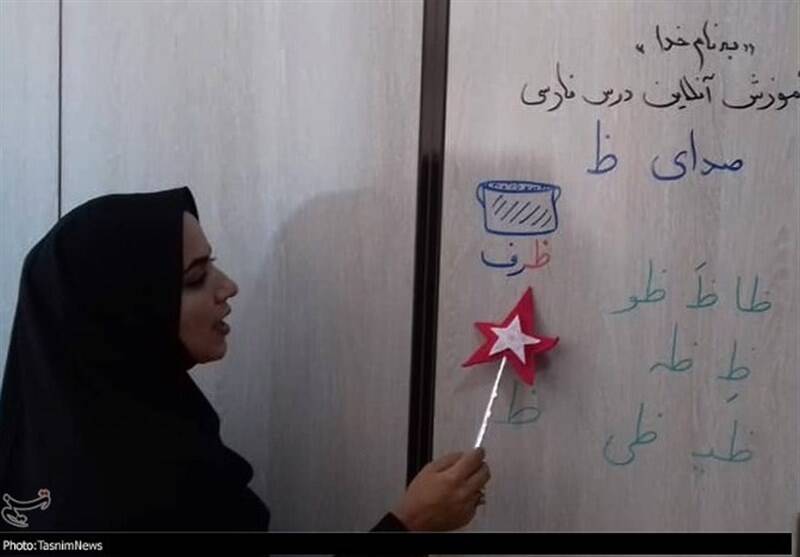 «به نام خدا»
آموزش آنلاین درس فارسی
صدای ظ
ظرف
ظا ظَ ظو
ظِ ظه
ظیـ ظی
ظ
تسنیم
Photo:TasnimNews